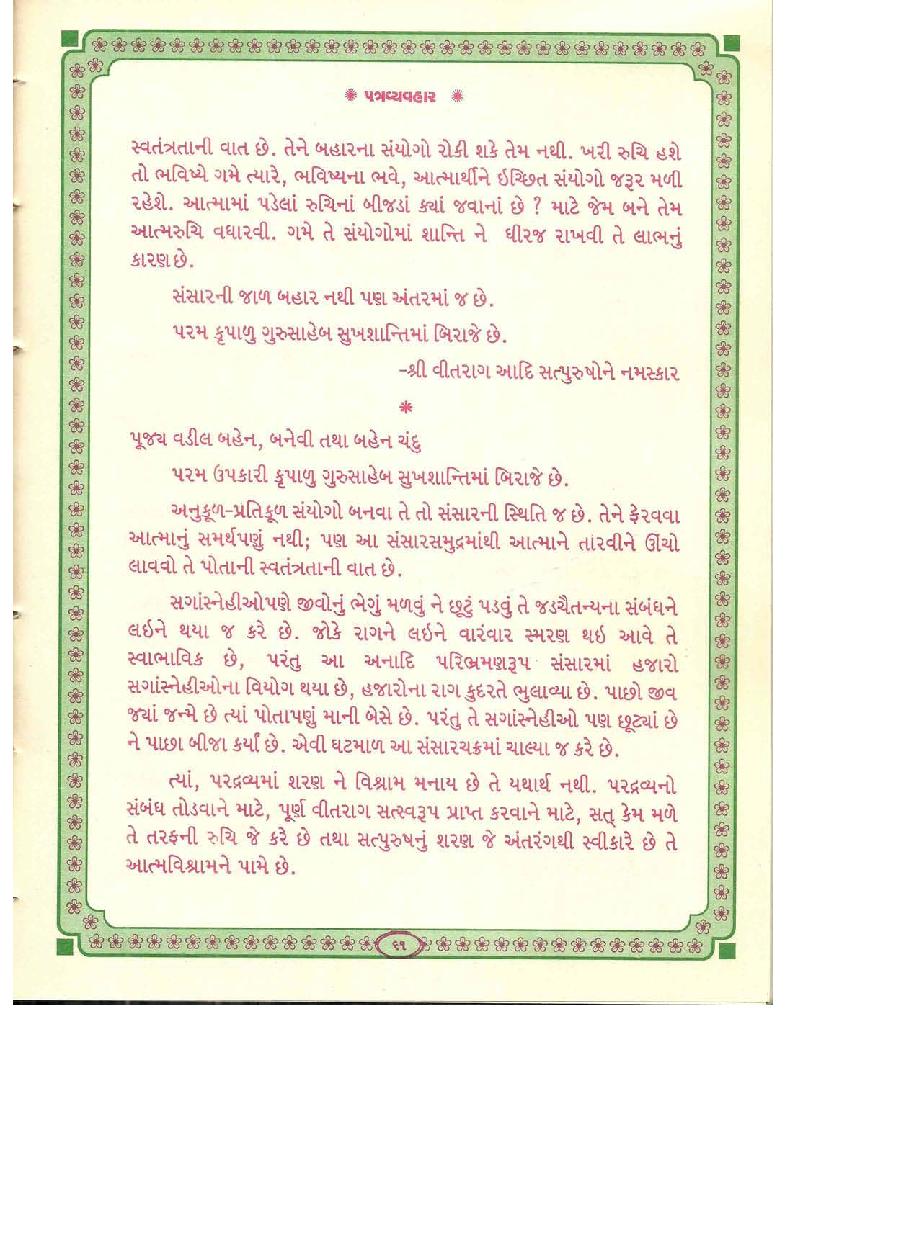 ❋ પત્રવ્યવહાર ❋
સ્વતંત્રતાની વાત છે. તેને બહારના સંયોગો રોકી શકે તેમ નથી. ખરી રુચિ હશે
તો ભવિષ્યે ગમે ત્યારે, ભવિષ્યના ભવે, આત્માર્થીને ઇચ્છિત સંયોગો જરૂર મળી
રહેશે. આત્મામાં પડેલાં રુચિનાં બીજડાં ક્યાં જવાનાં છે ? માટે જેમ બને તેમ
આત્મરુચિ વધારવી. ગમે તે સંયોગોમાં શાન્તિ ને ધીરજ રાખવી તે લાભનું
કારણ છે.
સંસારની જાળ બહાર નથી પણ અંતરમાં જ છે.
પરમ કૃપાળુ ગુરુસાહેબ સુખશાન્તિમાં બિરાજે છે.
-શ્રી વીતરાગ આદિ સત્પુરુષોને નમસ્કાર
❋
પૂજ્ય વડીલ બહેન, બનેવી તથા બહેન ચંદુ
પરમ ઉપકારી કૃપાળુ ગુરુસાહેબ સુખશાન્તિમાં બિરાજે છે.
અનુકૂળ-પ્રતિકૂળ સંયોગો બનવા તે તો સંસારની સ્થિતિ જ છે. તેને ફેરવવા
આત્માનું સમર્થપણું નથી; પણ આ સંસારસમુદ્રમાંથી આત્માને તારવીને ઊંચો
લાવવો તે પોતાની સ્વતંત્રતાની વાત છે.
સગાંસ્નેહીઓપણે જીવોનું ભેગું મળવું ને છૂટું પડવું તે જડચૈતન્યના સંબંધને
લઇને થયા જ કરે છે. જોકે રાગને લઇને વારંવાર સ્મરણ થઇ આવે તે
સ્વાભાવિક છે, પરંતુ આ અનાદિ પરિભ્રમણરૂપ સંસારમાં હજારો
સગાંસ્નેહીઓના વિયોગ થયા છે, હજારોના રાગ કુદરતે ભુલાવ્યા છે. પાછો જીવ
જ્યાં જન્મે છે ત્યાં પોતાપણું માની બેસે છે. પરંતુ તે સગાંસ્નેહીઓ પણ છૂટ્યાં છે
ને પાછા બીજા કર્યાં છે. એવી ઘટમાળ આ સંસારચક્રમાં ચાલ્યા જ કરે છે.
ત્યાં, પરદ્રવ્યમાં શરણ ને વિશ્રામ મનાય છે તે યથાર્થ નથી. પરદ્રવ્યનો
સંબંધ તોડવાને માટે, પૂર્ણ વીતરાગ સત્સ્વરૂપ પ્રાપ્ત કરવાને માટે, સત્ કેમ મળે
તે તરફની રુચિ જે કરે છે તથા સત્પુરુષનું શરણ જે અંતરંગથી સ્વીકારે છે તે
આત્મવિશ્રામને પામે છે.
૬૧